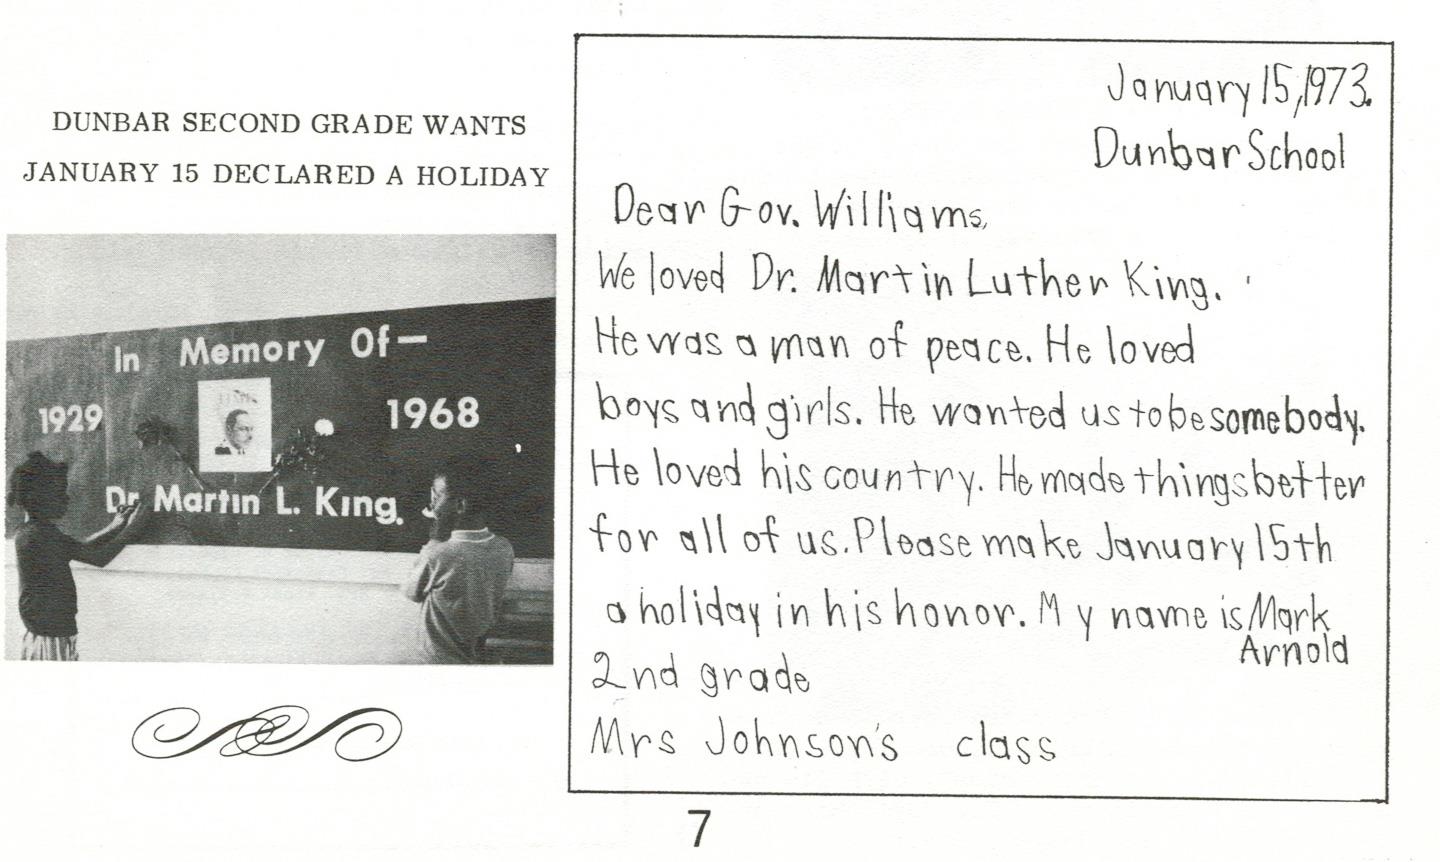 DUNBAR SECOND GRADE WANTS
JANUARY 15 DECLARED A HOLIDAY
In Memory Of—
1929
1968
Dr. Martin L. King.
January 15, 1973.
Dunbar School
Dear Gov. Williams,
We loved Dr. Martin Luther King.
He was a man of peace. He loved
boys and girls. He wanted us to be somebody.
He loved his country. He made things better
for all of us. Please make January 15th
a holiday in his honor. My name is Mark
Arnold
2nd grade
Mrs Johnson's class
7